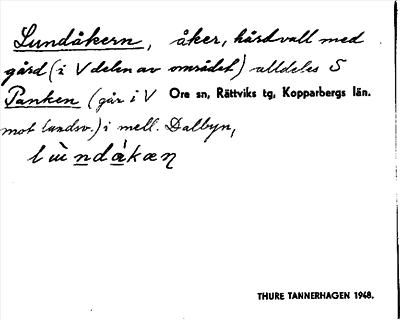 Lundåkern, åker, hårdvall med
gård (i V delen av området) alldeles S
Panken (går i V Ore sn, Rättviks tg, Kopparbergs län.
mot landsv.) i mell. Dalbyn,
THURE TANNERHAGEN 1948.